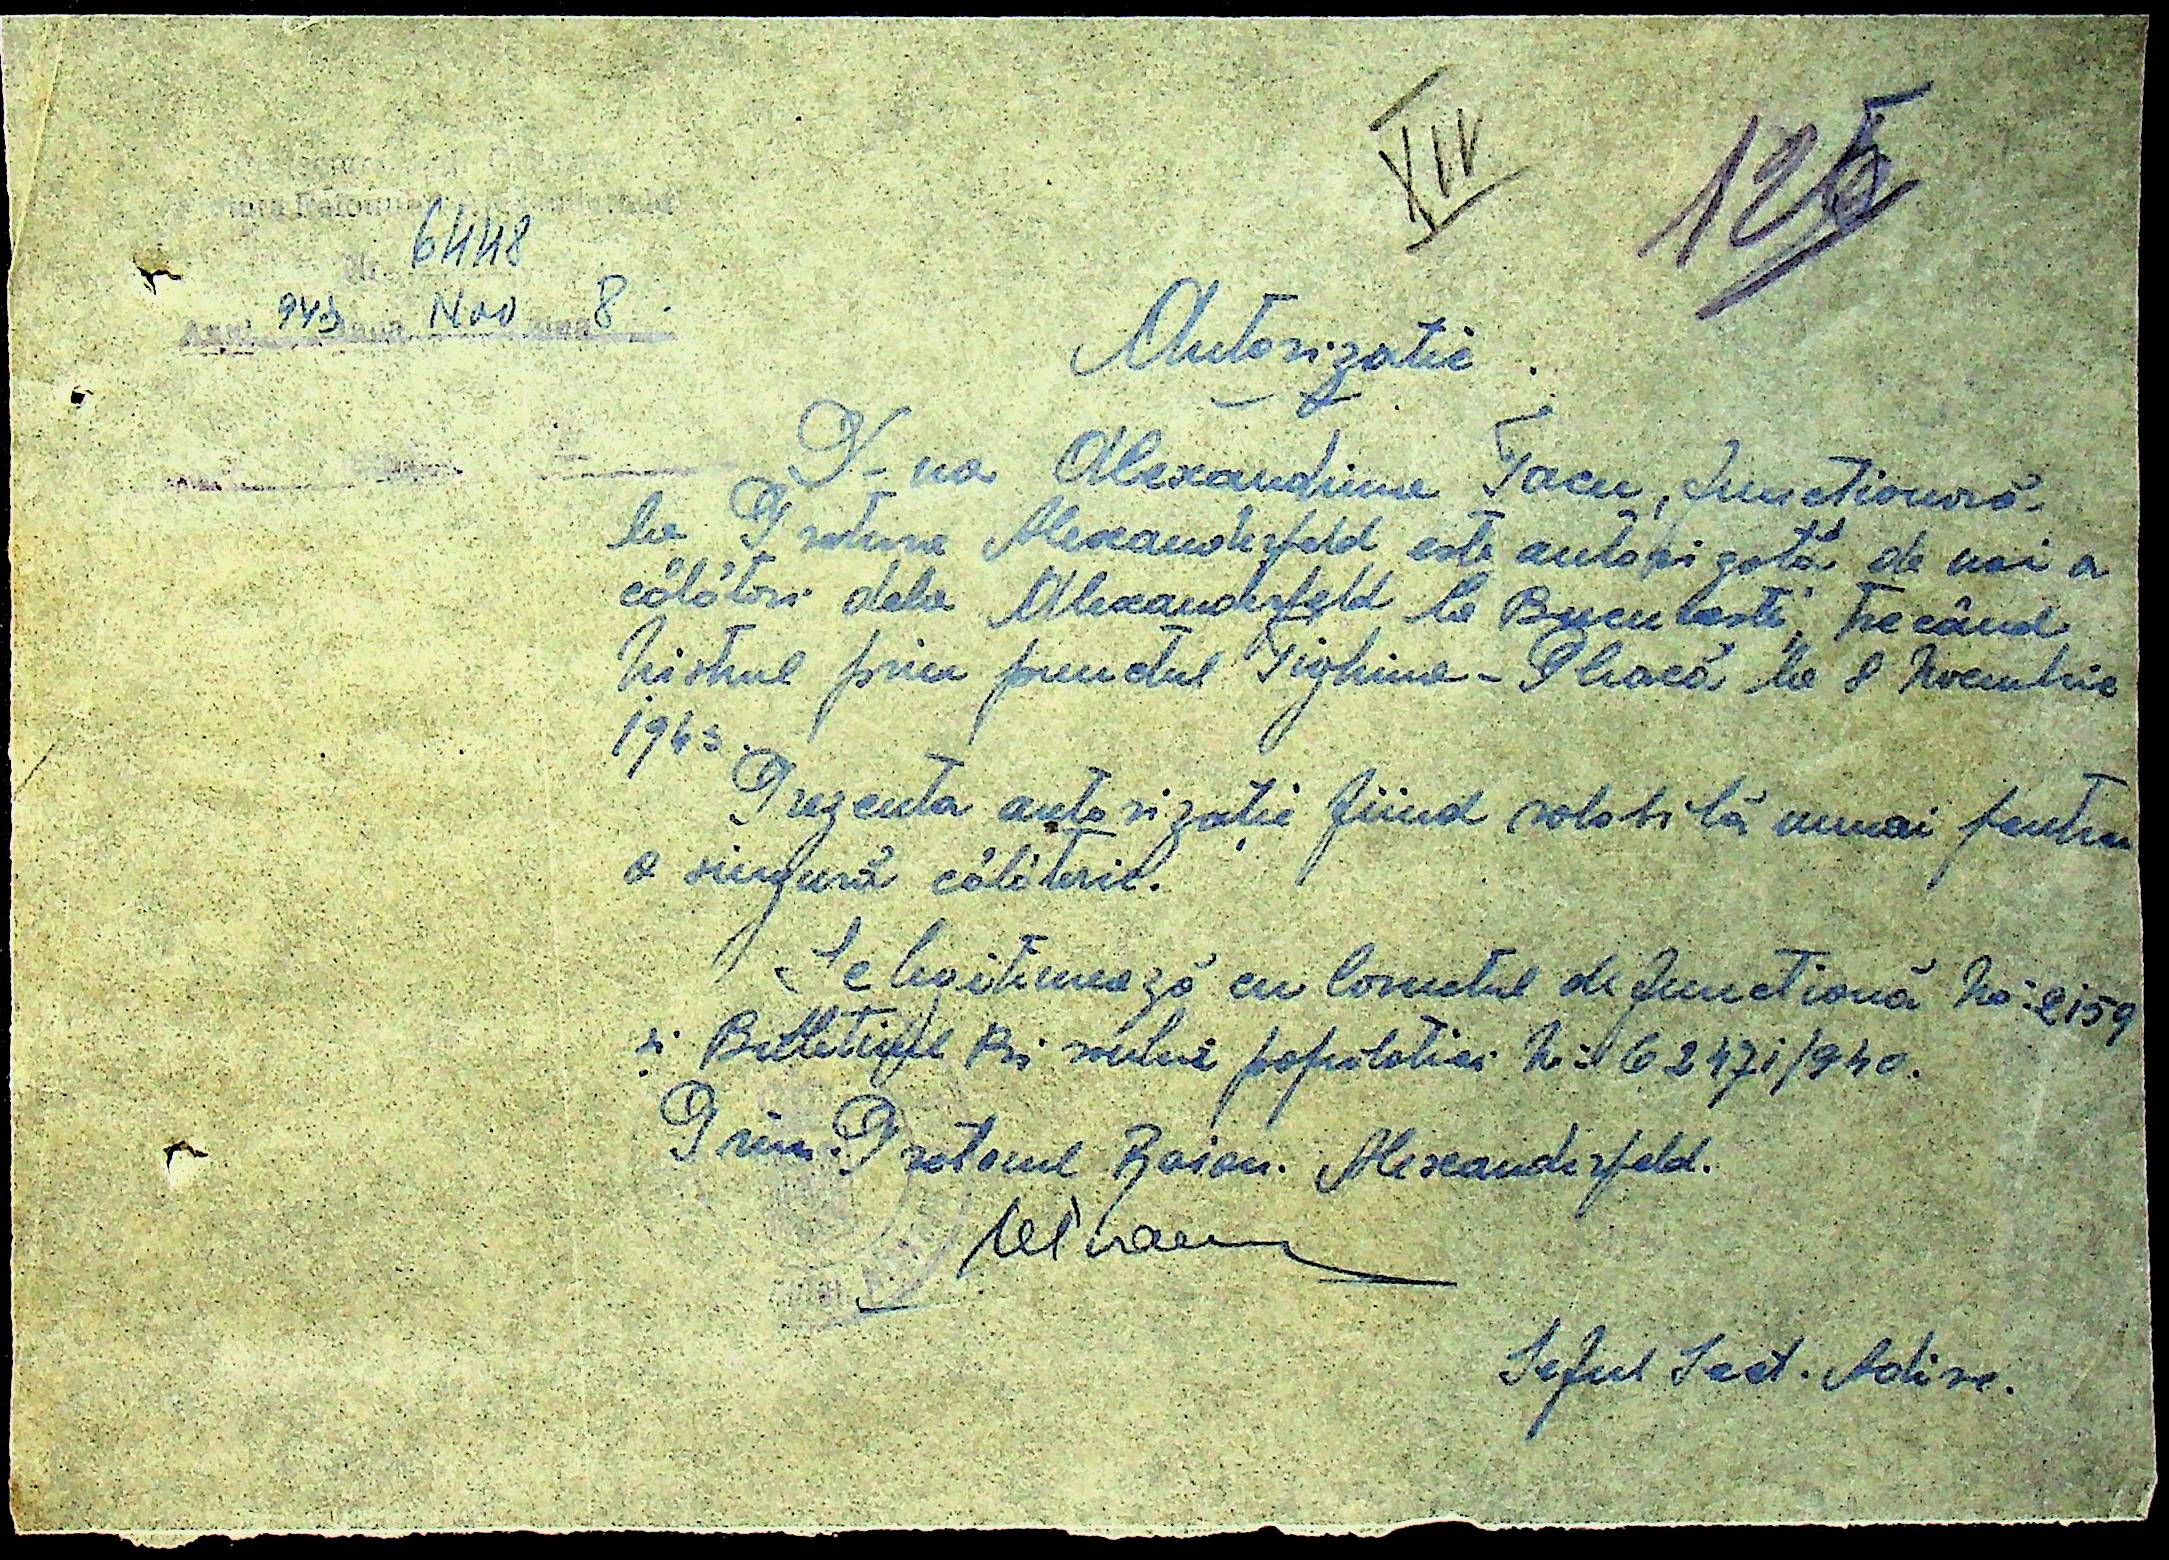 XIV
125
6448
943 Nov 8
Autorizatie.
D-na Alexandrina Tacu, functionară
la Pretura Alexanderfeld este autorizată de noi a
călători dela Alexanderfeld la Bucuresti, trecând
Nistrul prin punctul Tighina - la 8 Noembrie
1943.
Prezenta autorizație fiind valabilă numai pentru
o singură călătorie.
Se legitimează cu Carnetul de functionară No: 2159
și Bulletinul populatiei No: 6247i/940.
Prim. Pretorul Raion. Alexanderfeld.
Seful Sect. Adive.